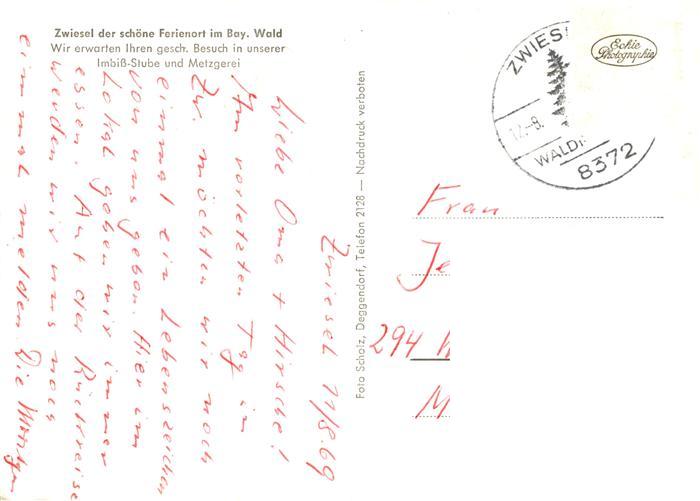 Zwiesel der schöne Ferienort im Bay. Wald
Wir erwarten Ihren gesch. Besuch in unserer
Imbiß-Stube und Metzgerei
Zwiesel 11/8.69
Liebe Oma + Hirsche!
Am vorletzten Tag in
Zw. möchten wir noch
einmal ein Lebenszeichen
von uns geben. Hier im
Lokal gehen wir immer
essen. Auf der Rückreise
werden wir uns noch
einmal melden. Die
Foto Scholz, Deggendorf, Telefon 2128 — Nachdruck verboten
ZWIES
12.-8.
WALD
8372
Echte
Photographie
Frau
Je
294 W
M